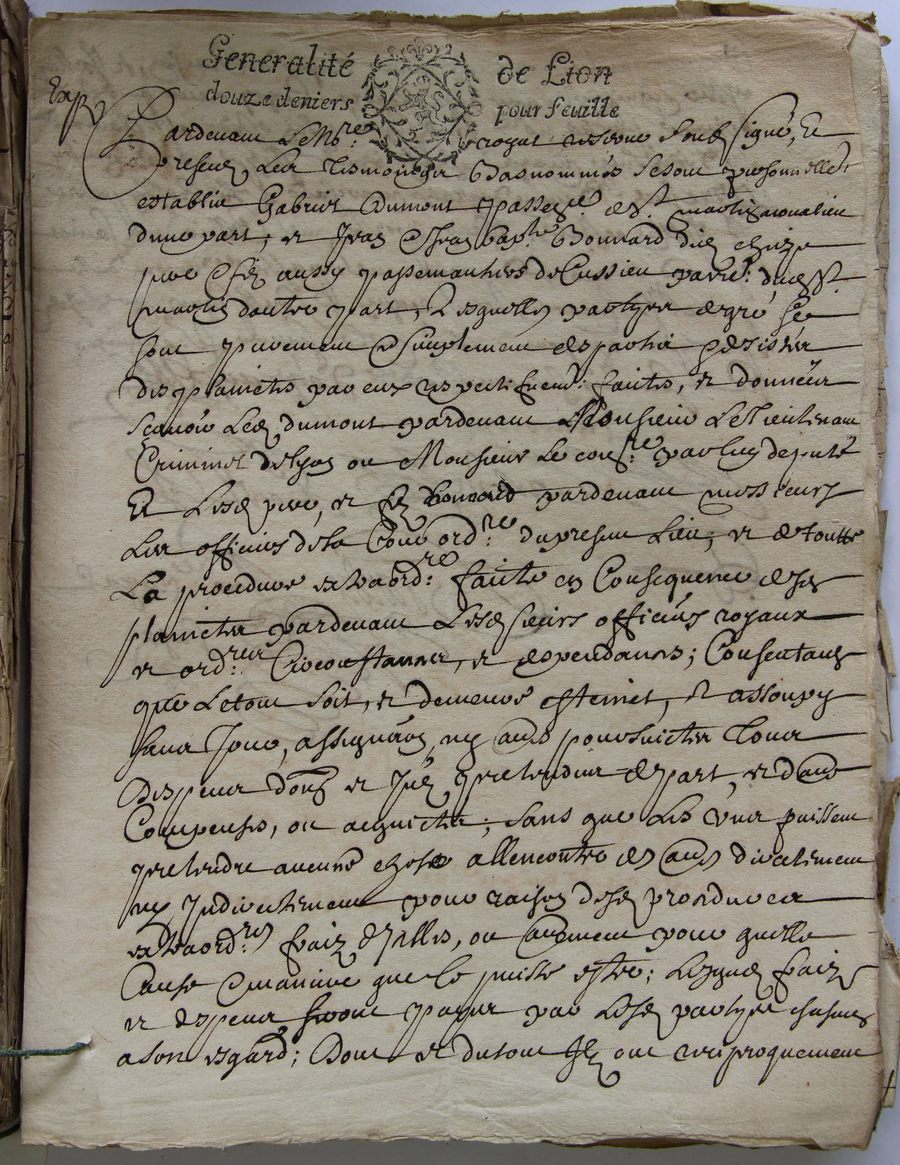 Generalité de Lion
douze deniers pour feuille
Exp.
Pardevant Le No.re royal reserve soubsigné, Et
presens Les tesmoings bas nommés se sont personnellem.t
establis Gabriel Dumont passe.r de S.t martin
d'une part, et Jean & Jean bap.te Bonnard dict
pere & filz aussy passemantiers de Cussieu parr.e dud S.t
martin d'autre part, Lesquelles partyes de gré se
sont purement & simplement despartie & desister
des plainctes par eux respectifvem.t faites, et donnees
Sçavoir Led. dumont pardevant Monsieur Le Lieutenant
Criminel de lyon ou Monsieur Le cons.re par luy deputé
Et Lesd. pere, et filz Bonnard pardevant messieurs
Les officiers de la Cour ord.re du present Lieu, et de toutte
La procedure extraord.re faite en Consequence desd.
plainctes pardevant Lesd. sieurs officiers royaux
et ord.res Circonstances, et despendances; Consentants
que Le tout soit, et demeure esteinct, et assoupy
sans Jour, assignaõn, ny aud poursuittes tous
Despens dom̃ et Jn.t pretendus de part, et d'aud
Compensés, ou acquictes, sans que Les uns puissent
pretendre aucune chose allencontre des aud directement
ny Jndirectement pour raison desd. procedures
extraord.res fraiz d'Jcelles, ou autrement pour quelle
Cause & maniere que Ce puisse estre; Lesquels fraiz
et despens seront payés par Lesd. partyes chascunes
a son esgard; Dont et du tout Jlz ont reciproquement